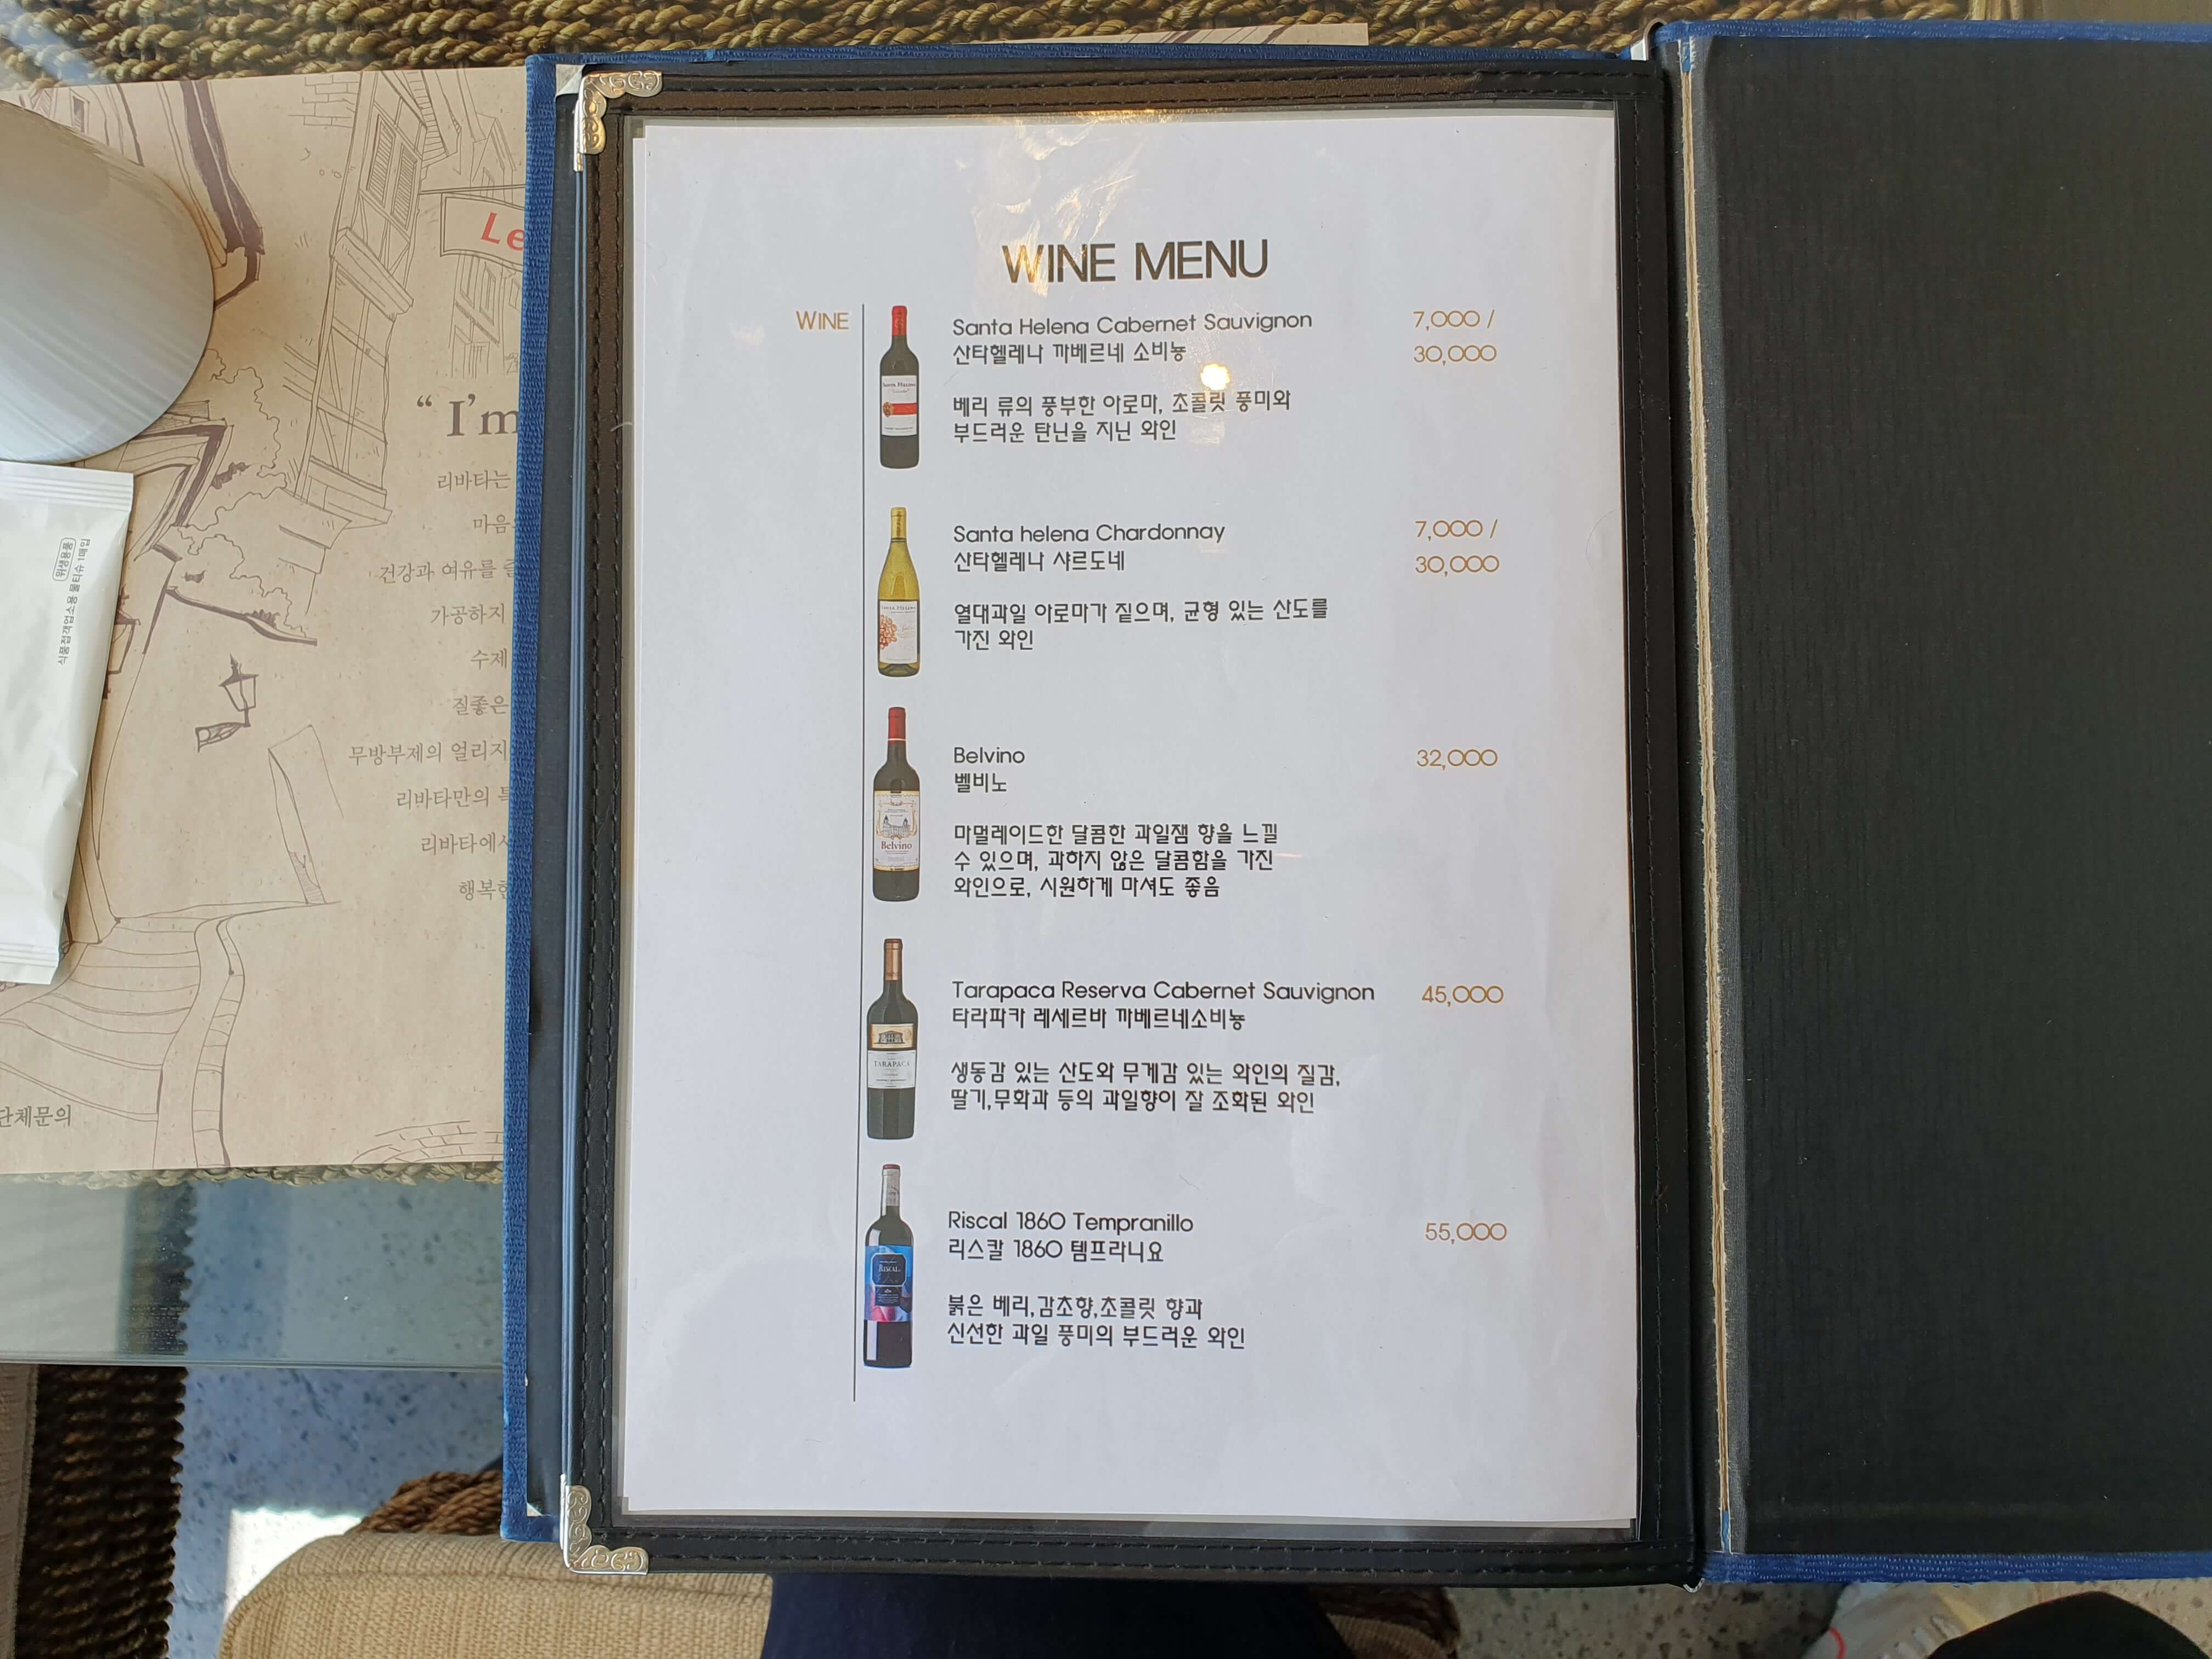 Le
“ I'm
리바타는
마음
건강과 여유를
가공하지
수제
질좋은
무방부제의 얼리지
리바타만의
리바타에서
단체문의
위생용품
식품접객업소용 물티슈 1매입
WINE MENU
WINE
Santa Helena Cabernet Sauvignon 7,000 /
산타헬레나 까베르네 소비뇽 30,000
베리 류의 풍부한 아로마, 초콜릿 풍미와
부드러운 탄닌을 지닌 와인
SANTA HELENA
Santa helena Chardonnay 7,000 /
산타헬레나 샤르도네 30,000
열대과일 아로마가 짙으며, 균형 있는 산도를
가진 와인
SANTA HELENA
Belvino 32,000
벨비노
마멀레이드한 달콤한 과일잼 향을 느낄
수 있으며, 과하지 않은 달콤함을 가진
와인으로, 시원하게 마셔도 좋음
Belvino
Tarapaca Reserva Cabernet Sauvignon 45,000
타라파카 레세르바 까베르네소비뇽
생동감 있는 산도와 무게감 있는 와인의 질감,
딸기,무화과 등의 과일향이 잘 조화된 와인
TARAPACA
Riscal 1860 Tempranillo 55,000
리스칼 1860 템프라니요
붉은 베리,감초향,초콜릿 향과
신선한 과일 풍미의 부드러운 와인
RISCAL